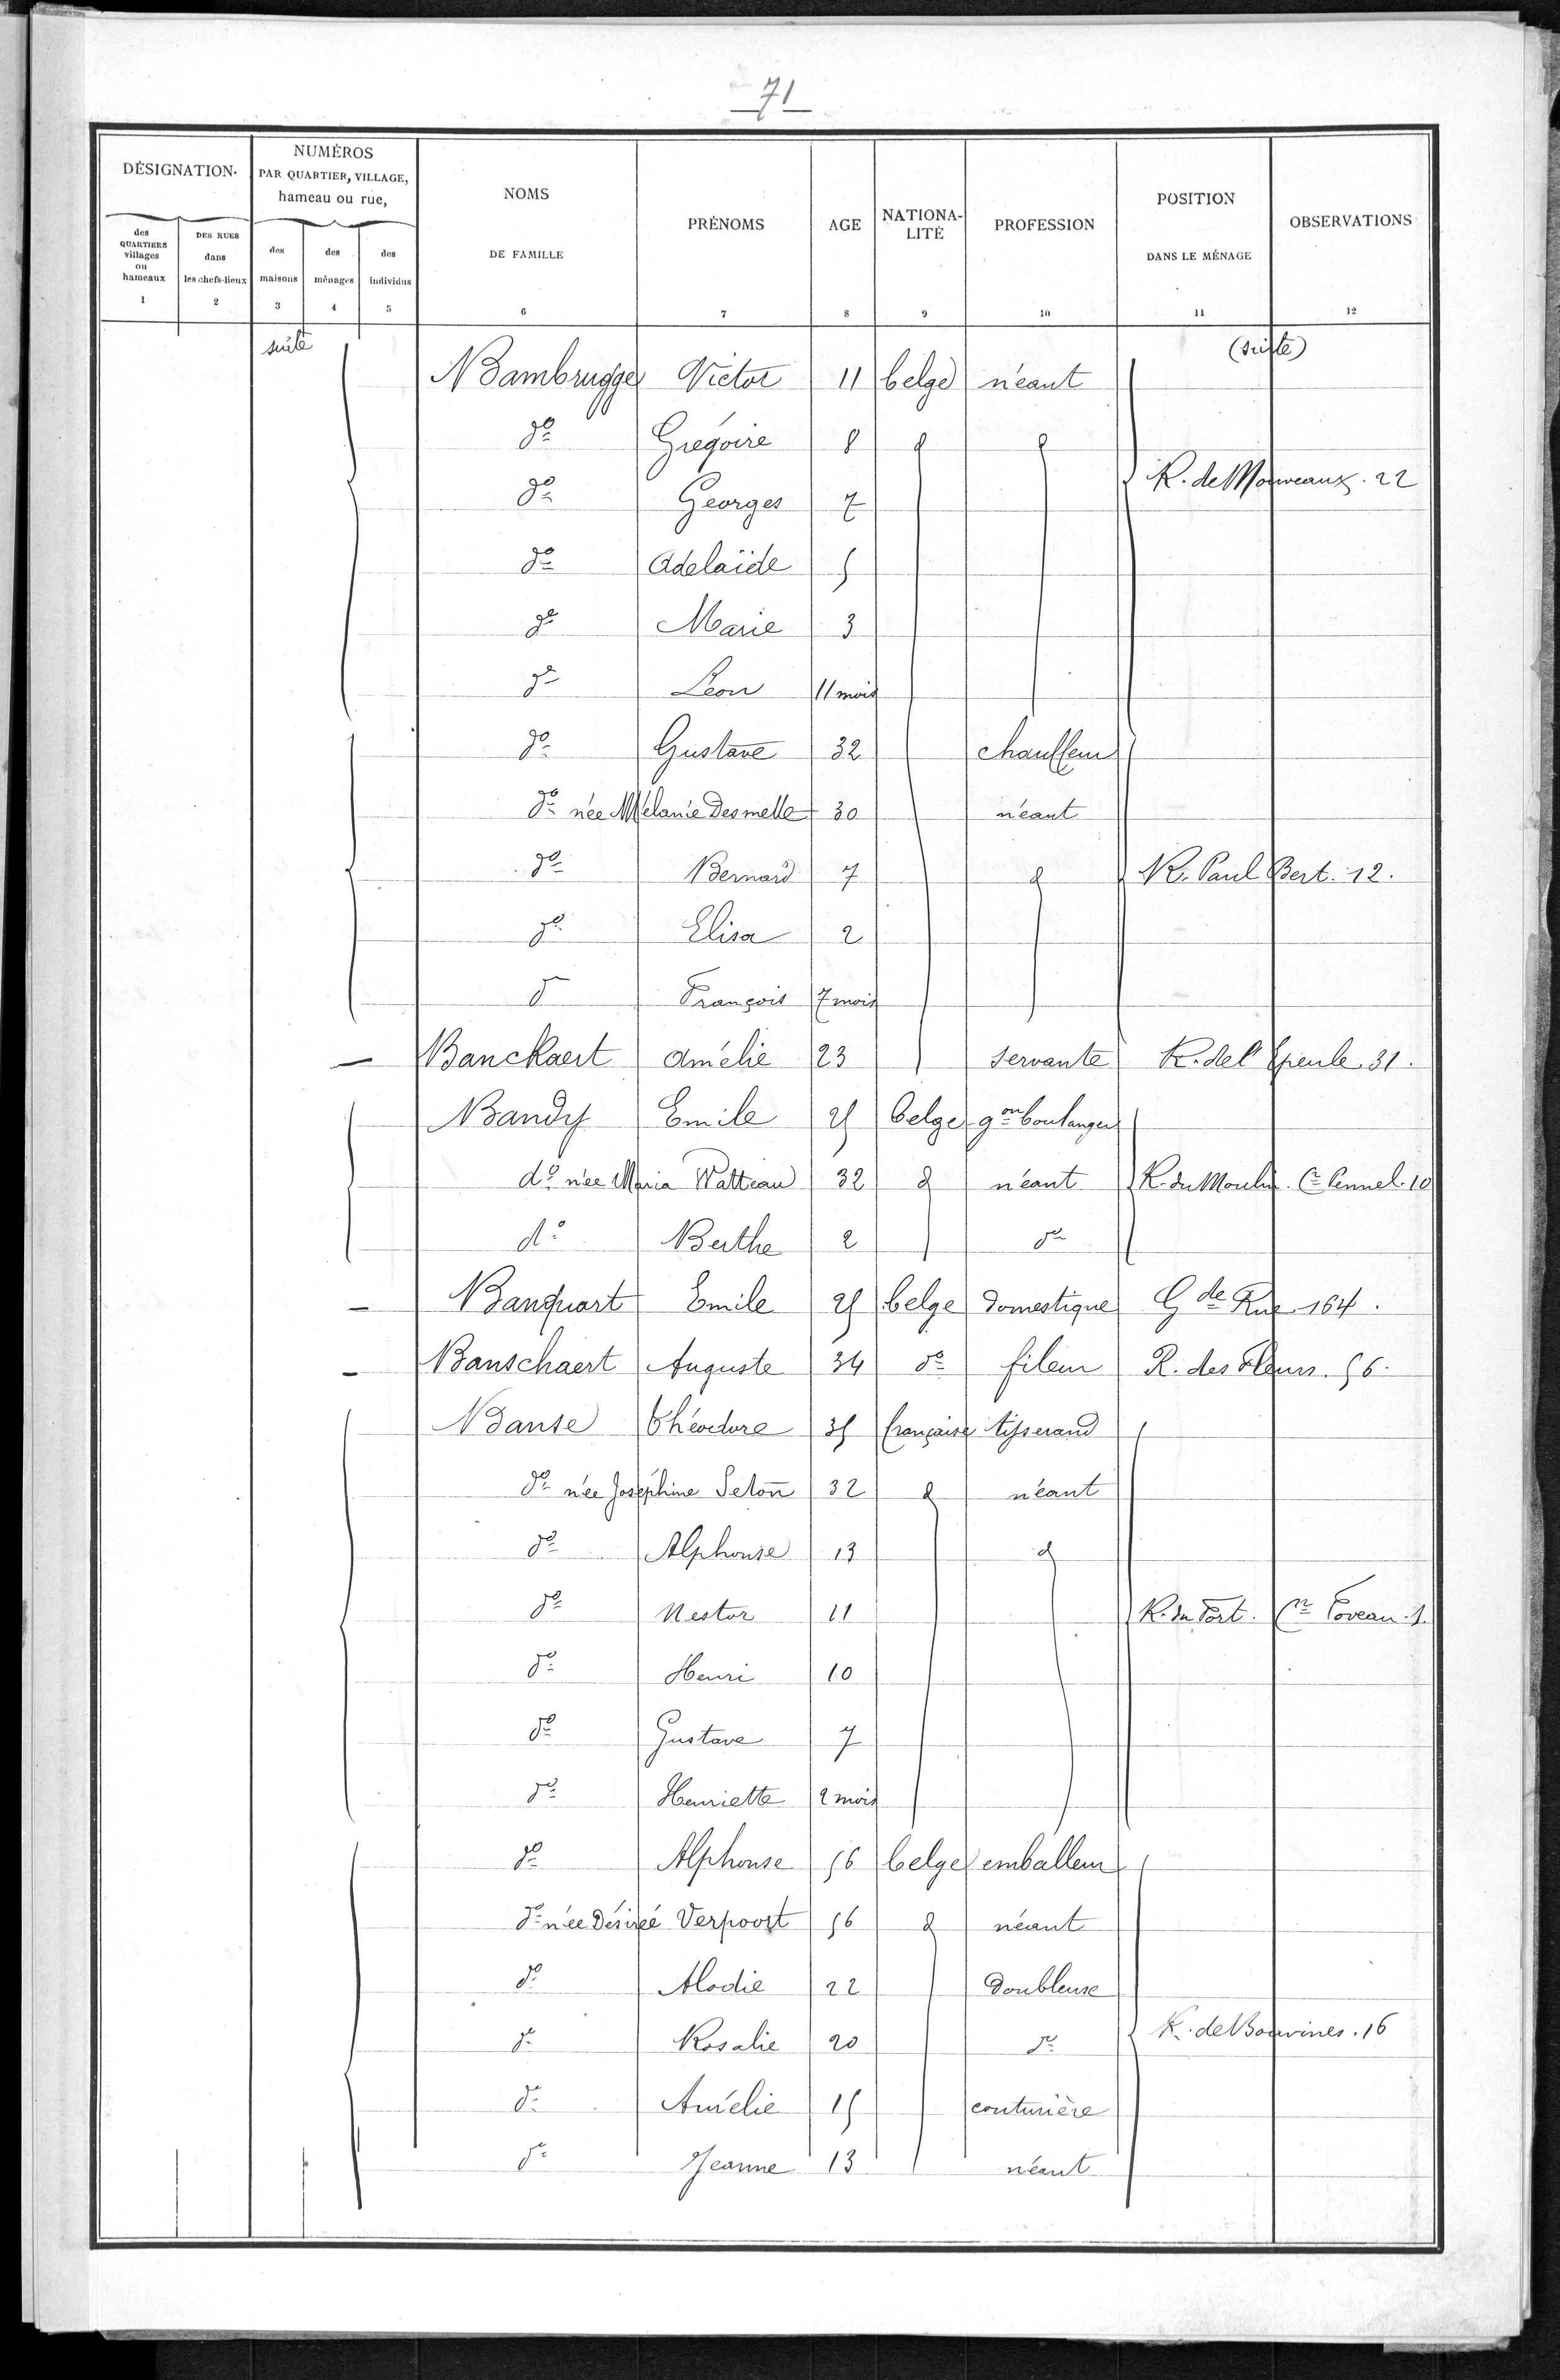 71
DÉSIGNATION.
NUMÉROS
PAR QUARTIER, VILLAGE,
hameau ou rue,
NOMS
DE FAMILLE
PRÉNOMS
AGE
NATIONA-
LITÉ
PROFESSION
POSITION
DANS LE MÉNAGE
OBSERVATIONS
des
QUARTIERS
villages
ou
hameaux
DES RUES
dans
les chefs-lieux
des
maisons
des
ménages
des
individus
1 2 3 4 5 6 7 8 9 10 11 12
suite (suite)
Bambrugge Victor 11 belge néant
do Grégoire 8 d d
R. de Mouveaux. 22
do Georges 7
do Adelaïde 5
do Marie 3
do Léon 11 mois
do Gustave 32 chauffeur
do née Mélanie Desmelle 30 néant
do Bernard 7 d R. Paul Bert. 12.
do Elisa 2
do François 7 mois
— Banckaert Amélie 23 servante R. de l'Epeule 31.
Bandy Emile 25 belge gon boulanger
do née Maria Watteau 32 d néant R. du Moulin. Cr Pennel. 10
do Berthe 2 do
— Banquart Emile 25 belge domestique Gde Rue 164.
— Banschaert Auguste 34 do fileur R. des Fleurs. 56.
Banse Théodore 35 française tisserand
do née Joséphine Seton 32 d néant
do Alphonse 13 d
do Nestor 11 R. du Fort. Cr 1.
do Henri 10
do Gustave 7
do Henriette 2 mois
do Alphonse 56 belge emballeur
do née Désireé Verpoort 56 d néant
do Alodie 22 doubleuse
do Rosalie 20 do R. de Bouvines. 16
do Aurélie 15 couturière
do Jeanne 13 néant